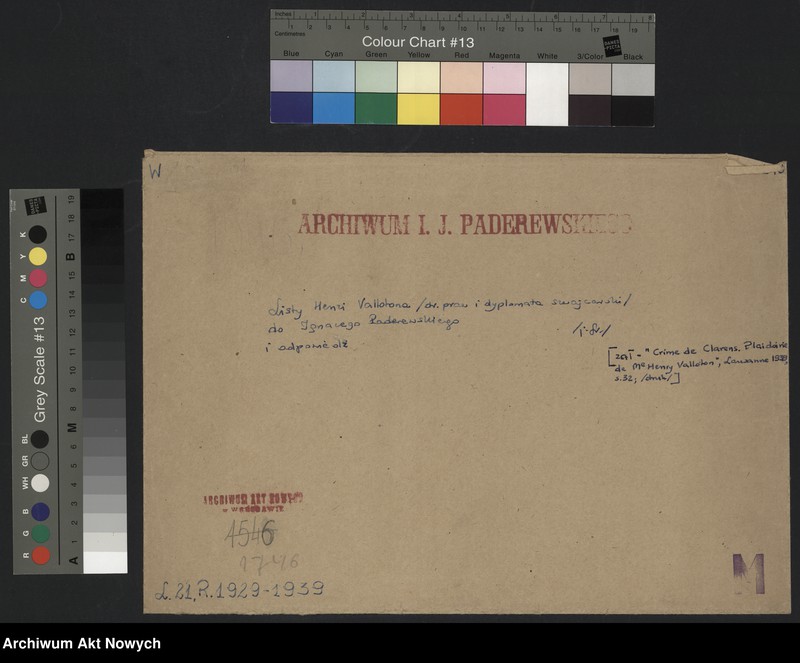 Inches 1 2 3 4 5 6 7 8
Centimetres 1 2 3 4 5 6 7 8 9 10 11 12 13 14 15 16 17 18 19
Colour Chart #13
Blue Cyan Green Yellow Red Magenta White 3/Color Black
W
ARCHIWUM I. J. PADEREWSKIEGO
Listy Henri Vallotona /dr. praw i dyplomata szwajcarski/
do Ignacego Paderewskiego
i odpowiedź
/j. fr./
[zał - "Crime de Clarens. Plaidoirie
de Me Henry Valloton", Lausanne
s. 32; /druk/]
ARCHIWUM AKT NOWYCH
W WARSZAWIE
4546
1746
L. 21, R. 1929-1939
M
Grey Scale #13
C M Y K
R G B WH GR BL
A 1 2 3 4 5 6 M 8 9 10 11 12 13 14 15 B 17 18 19
Archiwum Akt Nowych